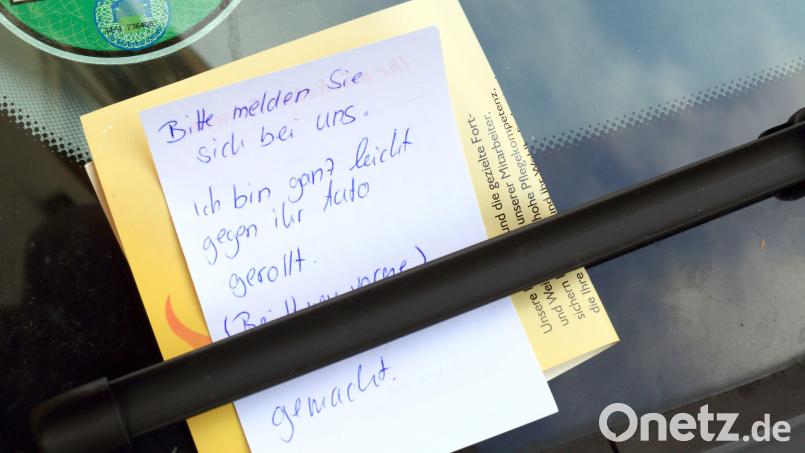 Bitte melden Sie
sich bei uns.
ich bin ganz leicht
gegen ihr Auto
gerollt.
(Bei Ihnen vorne)
gemacht.
und die gezielte Fort-
unserer Mitarbeiter,
hohe Pflegekompetenz.
Unsere
und Wei
sichern
die Ihre
Onetz.de